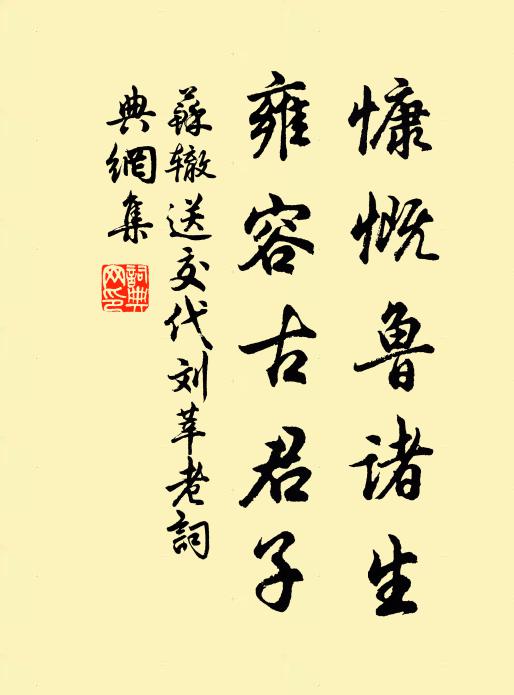 慷慨鲁诸生
雍容古君子
蘇辙送交代刘莘老詞
典網集
詞典网印